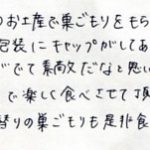 のお土産で巣ごもりをもら
包装にキャップがしてあ
がでて素敵だなと思い
で楽しく食べさせて頂
替りの巣ごもりも是非食